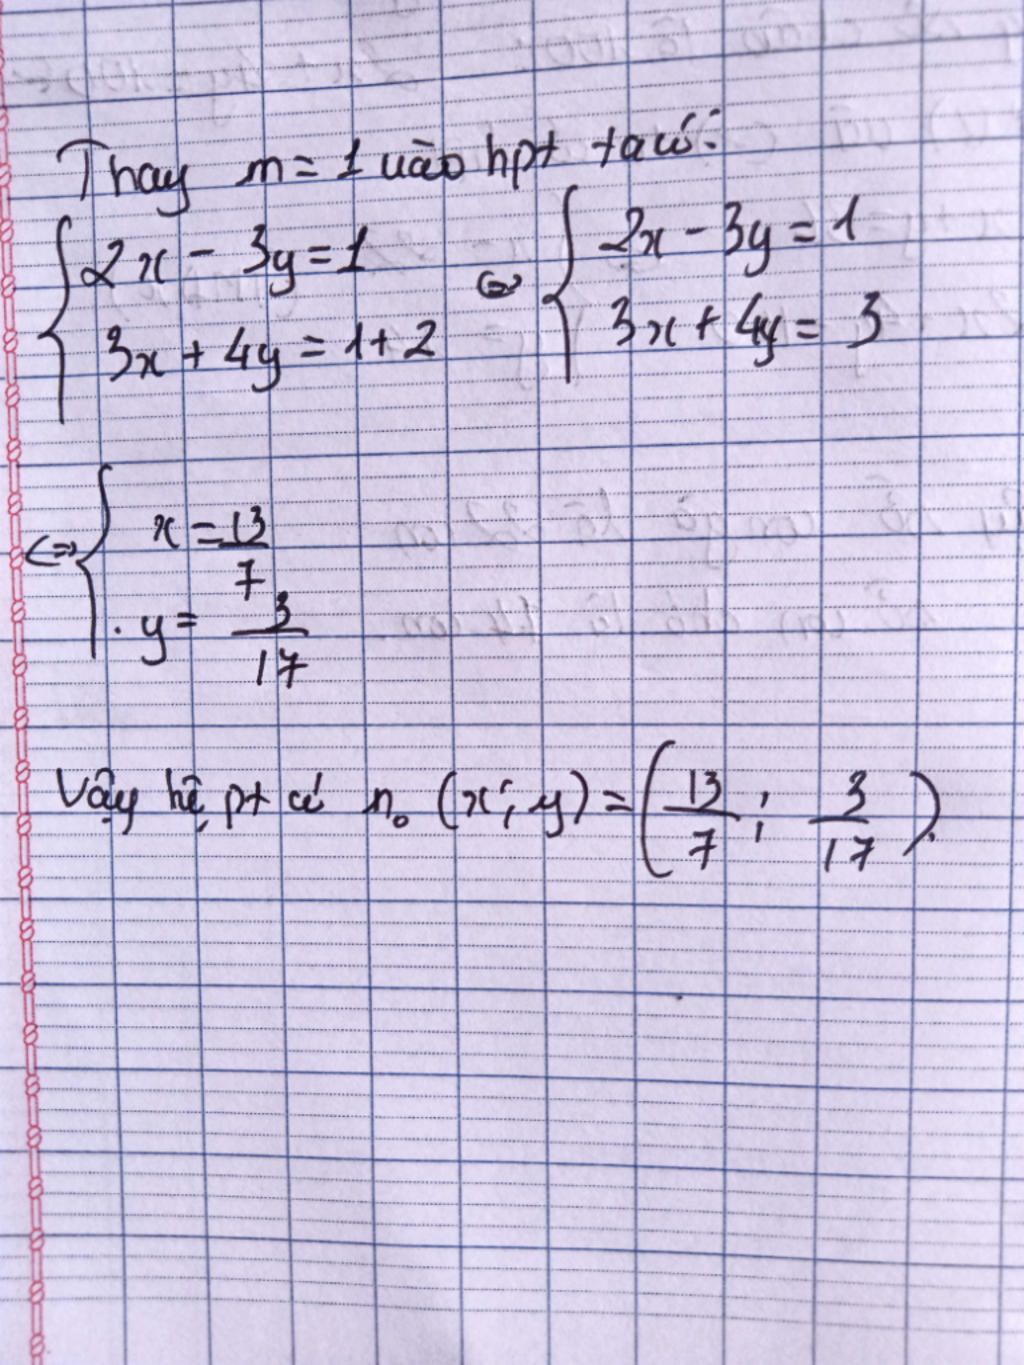 Thay m = 1 vào hpt ta có:
{ 2x - 3y = 1 <=> { 2x - 3y = 1
3x + 4y = 1 + 2 3x + 4y = 3
<=> { x = 13/7
y = 3/17
Vậy hệ pt có n₀ (x; y) = (13/7; 3/17).